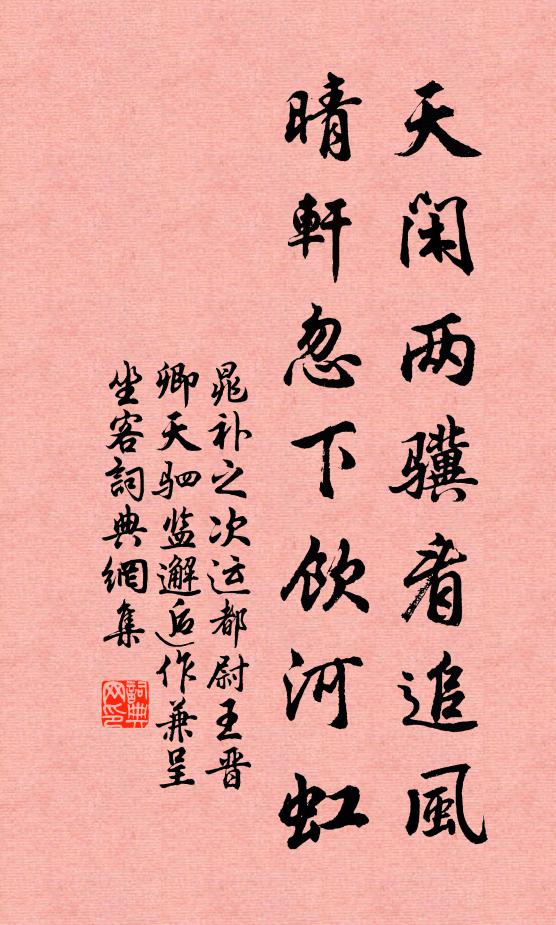 天闲两骥看追風
晴軒忽下飲河虹
晁补之次运都尉王晋
卿天驷监邂逅作兼呈
坐客詞典網集
詞典
网印